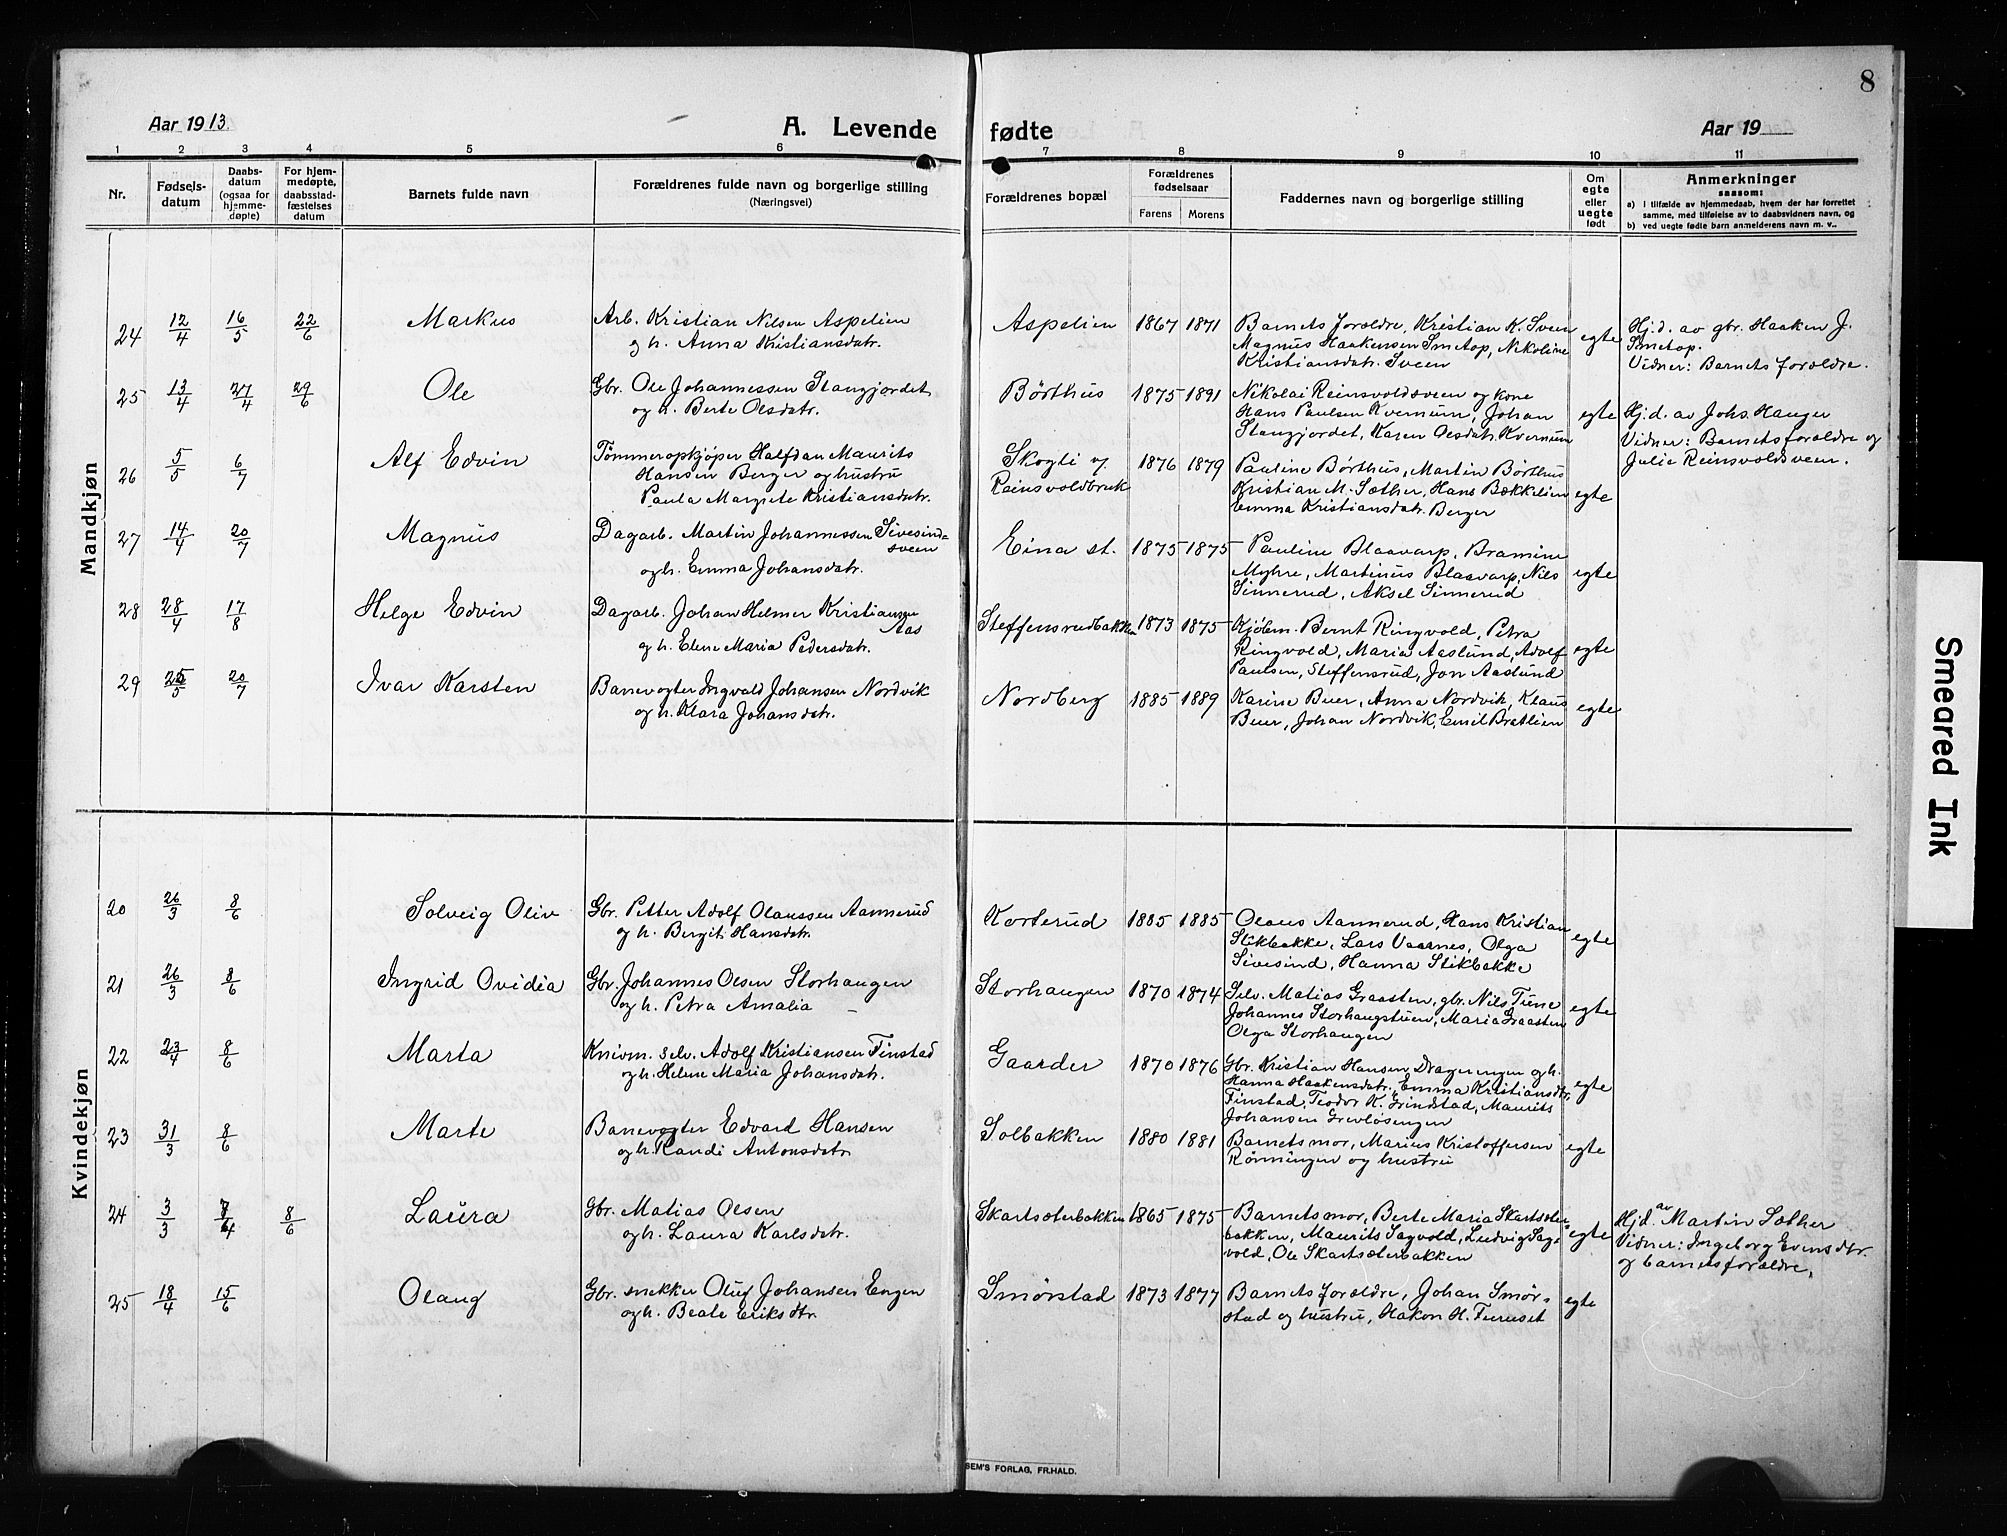 8
Aar 1913.
A. Levende fødte
Aar 19
1 2 3 4 5 6 7 8 9 10 11
Nr.
Fødsels-
datum
Daabs-
datum
(ogsaa for
hjemme-
døpte)
For hjem-
medøpte,
daabsstad-
fæstelses
datum
Barnets fulde navn
Forældrenes fulde navn og borgerlige stilling
(Næringsvei)
Forældrenes bopæl
Forældrenes
fødselsaar
Farens Morens
Faddernes navn og borgerlige stilling
Om
egte
eller
uegte
født
Anmerkninger
saasom:
a) i tilfælde av hjemmedaab, hvem der har forrettet
samme, med tilføielse av to daabsvidners navn, og
b) ved uegte fødte barn anmelderens navn m. v..
Mandkjøn
24 12/4 16/5 22/6 Markus
Arb. Kristian Nilsen Aspelien
og h. Anna Kristiansdatr.
Aspelien 1867 1871
Barnets foræld​re, Kristian K. Sveen
Magnus Haakensen Smetop, Nikoline
Kristiansdatr. Sveen
egte
Hj.d. av gbr. Haaken J.
Smetop.
Vidner: Barnets forældre.
25 13/4 27/4 29/6 Ole
Gbr. Ole Johannessen Stangjordet
og h. Berte Olsdatr.
Børthus 1875 1891
Nikolai Reinsvoldsveen og kone
Hans Paulsen Kvernum, Johan
Stangjordet, Karen Olsdatr. Kvernum
egte
Hj.d. av Johs. Hauger
Vidner: Barnets forældre og
Julie Reinsvoldsveen.
26 5/5 6/7 Alf Edvin
Tømmeropkjøper Halfdan Maurits
Hansen Berger og hustru
Paula Margrete Kristiansdatr.
Skogli v/
Reinsvoldbruk 1876 1879
Pauline Børthus, Martin Børthus
Kristian M. Sæther, Hans Bækkelien
Emma Kristiansdatr. Berger
egte
27 14/4 20/7 Magnus
Dagarb. Martin Johannessen Sivesind-
sveen
og h. Emma Johansdatr.
Eina st. 1875 1875
Pauline Blaavarp, Bramine
Myhre, Martinus Blaavarp, Nils
Sinnerud, Aksel Sinnerud
egte
28 28/4 17/8 Helge Edvin
Dagarb. Johan Helmer Kristiansen
Aas
og h. Elene Maria Pedersdatr.
Steffensrudbakken 1873 1875
Kjøbm. Bernt Ringvold, Petra
Ringvold, Maria Aaslund, Adolf
Paulsen, Steffensrud, Jon Aaslund
egte
29 25/5 20/7 Ivar Karsten
Banevogter Ingvald Johansen Nordvik
og h. Klara Johansdatr.
Nordberg 1885 1889
Karine Buer, Anna Nordvik, Klaus
Buer, Johan Nordvik, Emil Bratlien
egte
Kvindekjøn
20 26/3 8/6 Solveig Oliv
Gbr. Petter Adolf Olaussen Aannerud
og h. Bergit Hansdatr.
Korterud 1885 1885
Olaus Aannerud, Hans Kristian
Stikbakke, Lars Vaarnes, Olga
Sivesind, Hanna Stikbakke
egte
21 26/3 8/6 Ingrid Ovidia
Gbr. Johannes Olsen Storhaugen
og h. Petra Amalia
Storhaugen 1870 1874
Selv. Matias Graasten, gbr. Nils Tune
Johannes Storhaugstuen, Maria Graasten
Olga Storhaugen
egte
22 23/4 8/6 Marta
Knivm. selv. Adolf Kristiansen Finstad
og h. Helene Maria Johansdatr.
Gaarder 1870 1876
Gbr. Kristian Hansen Drageengen og h.
Hanna Haakensdatr., Emma Kristiansdtr.
Finstad, Teodor K. Grindstad, Maurits
Johansen Grevløsengen
egte
23 31/3 8/6 Marte
Banevogter Edvard Hansen
og h. Randi Antonsdatr
Solbakken 1880 1881
Barnets mor, Marius Kristoffersen
Rønningen og hustru
egte
24 3/3 7/4 8/6 Laura
Gbr. Matias Olsen
og h. Laura Karlsdatr.
Skartsæterbakken 1865 1875
Barnets mor, Berte Maria Skartsæter-
bakken, Maurits Sagvold, Ludvig Sag-
vold, Ole Skartsæterbakken
egte
Hjd. av Martin Sæther
Vidner: Ingeborg Evensdtr.
og barnets forældre.
25 18/4 15/6 Olaug
Gbr. snekker Oluf Johansen Engen
og h. Beate Eriksdtr
Smørstad 1873 1877
Barnets forældre, Johan Smør-
stad og hustru, Hakon H. Furuset
egte
SEM'S FORLAG, FR.HALD.
Smeared Ink